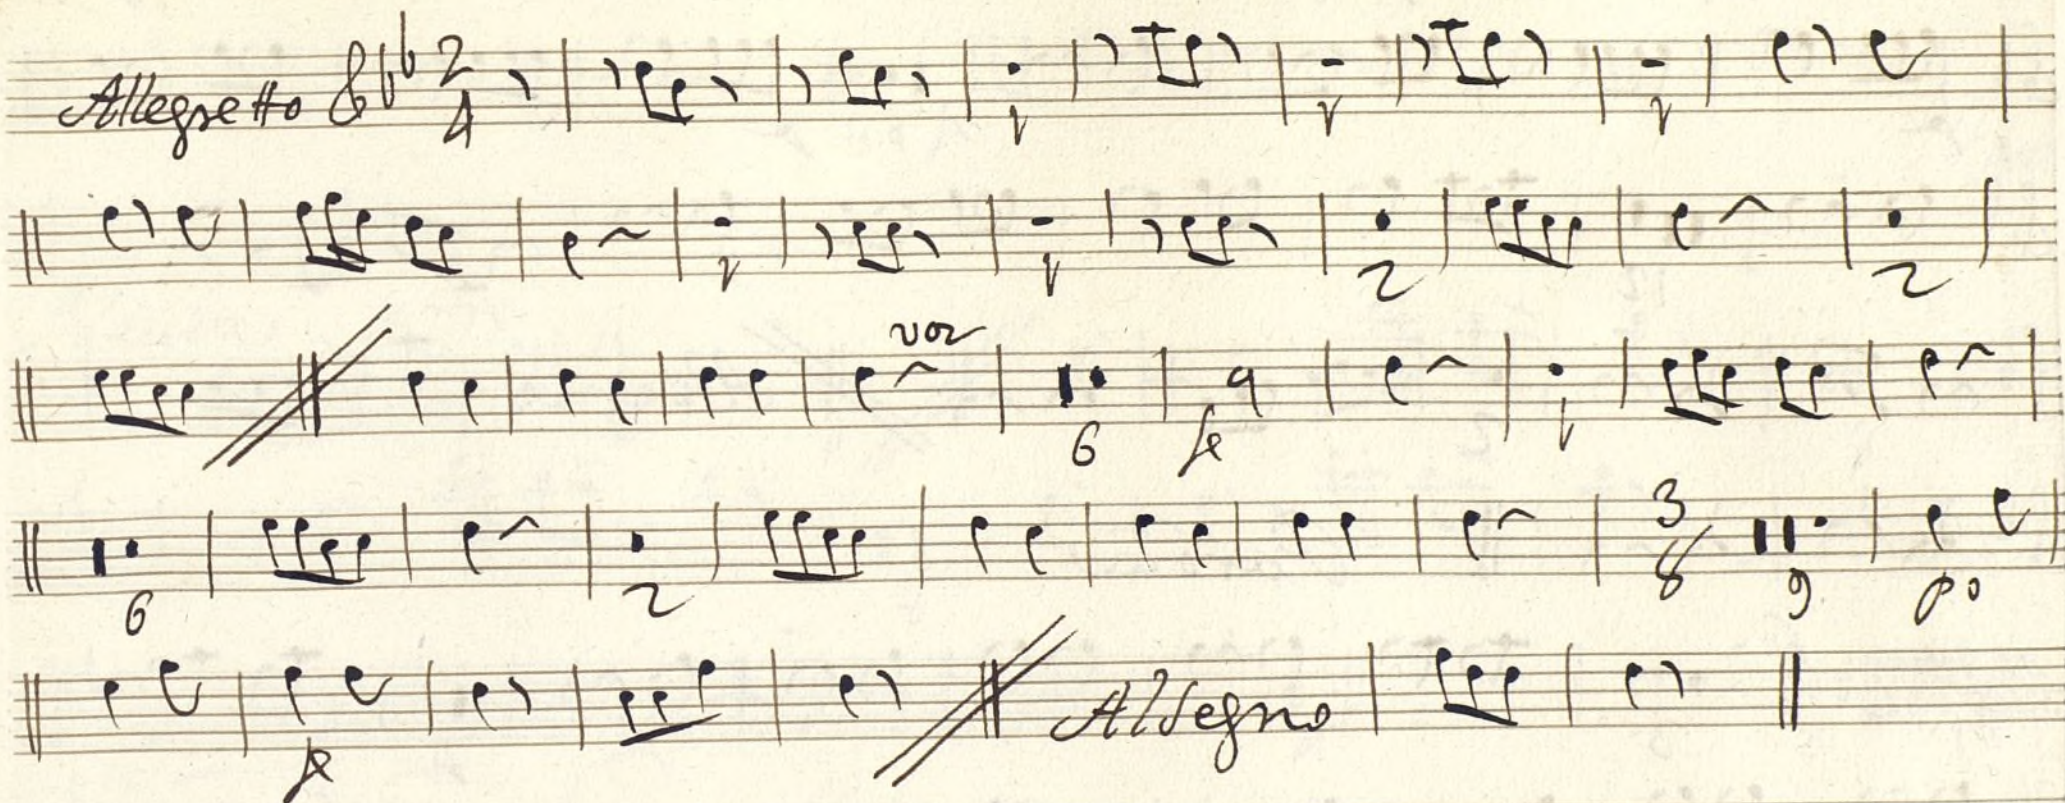 Allegretto 2 4 1 1 1
1 1 2 2
voz 6 fe 1
6 2 3 8 9 po
fe Al Segno